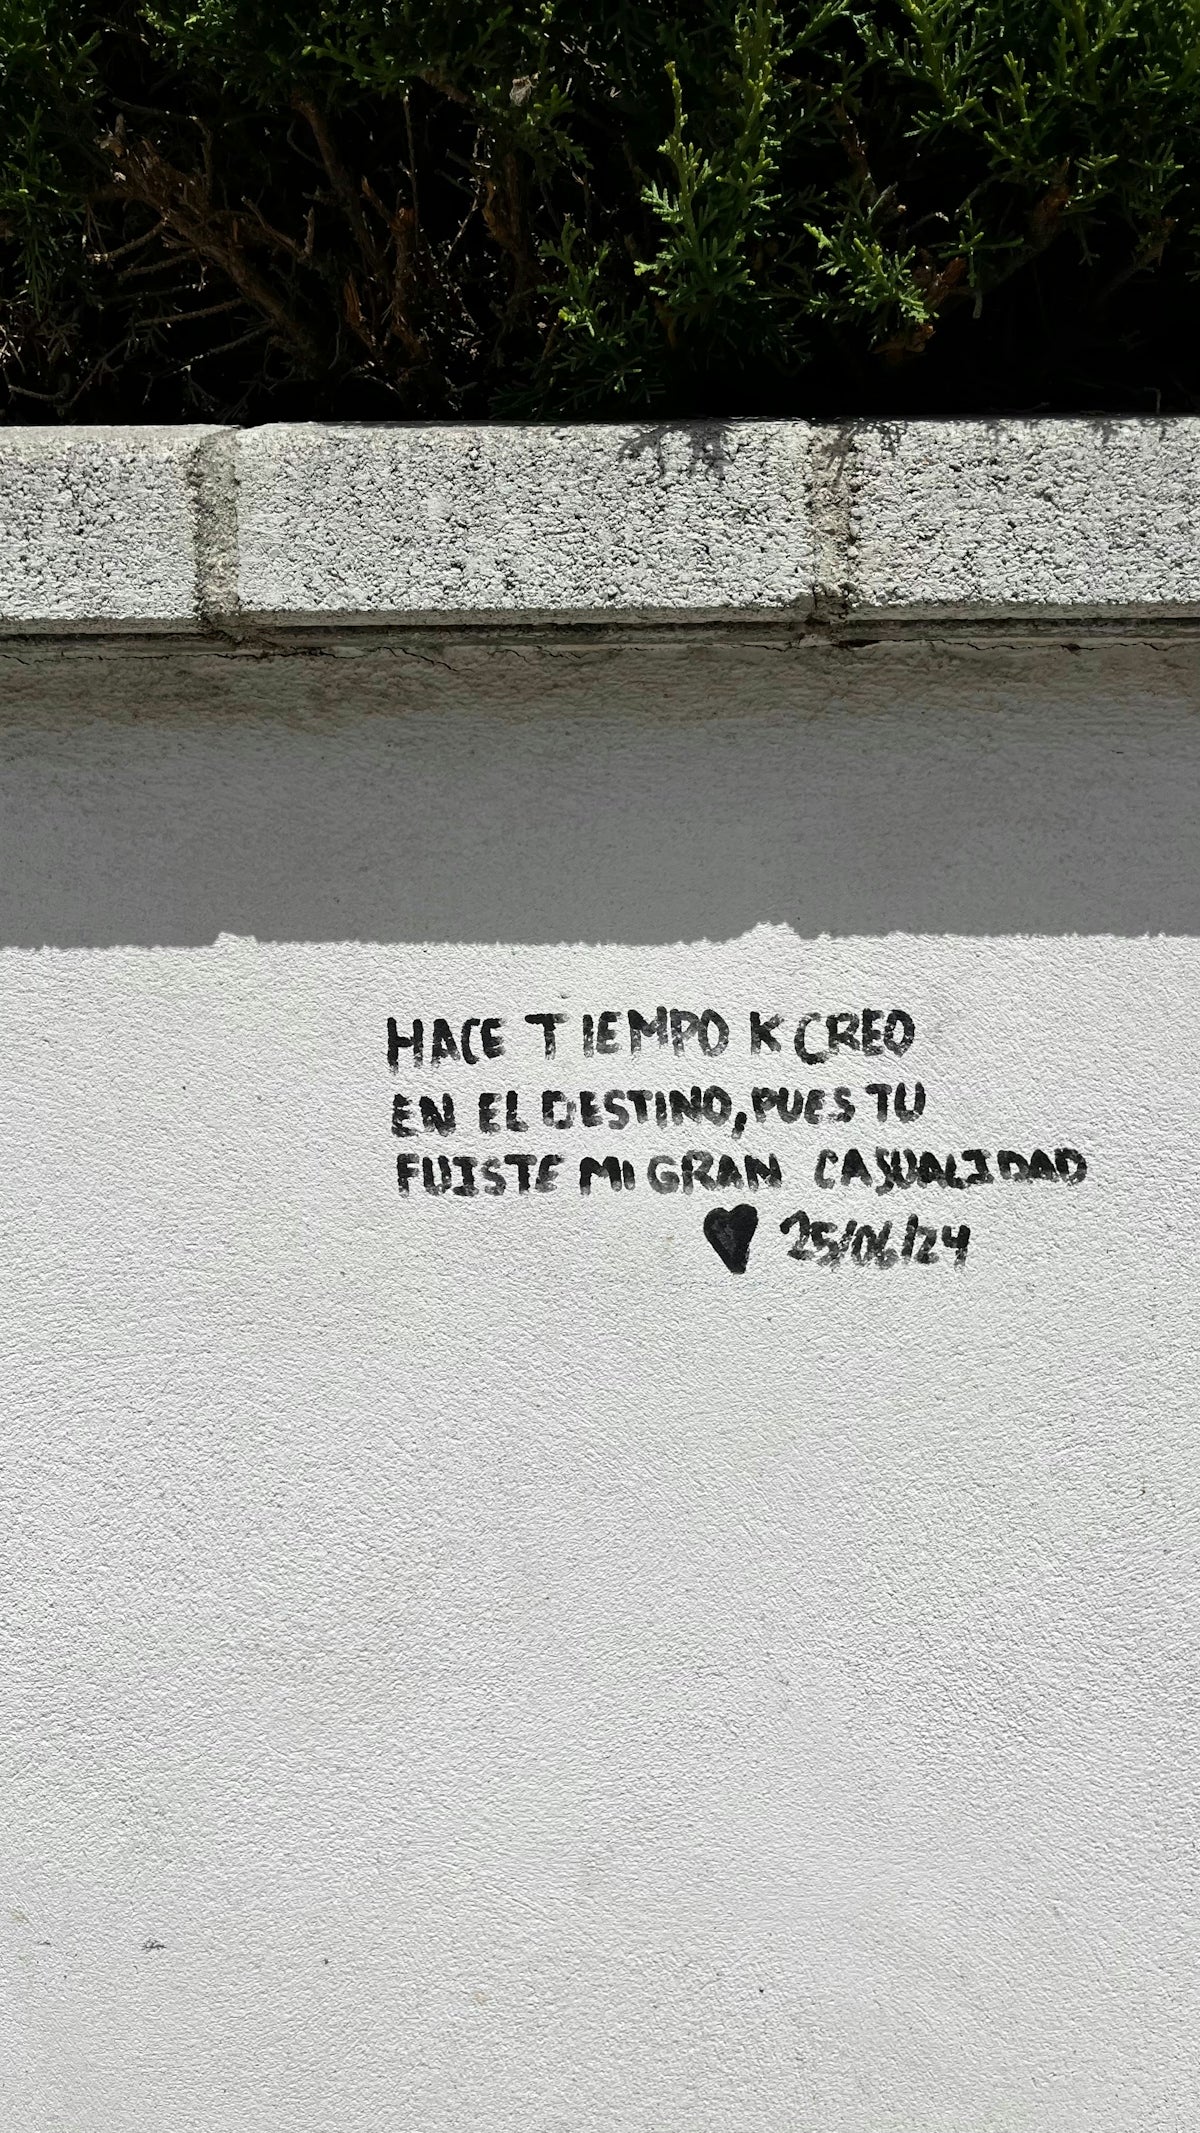 HACE TIEMPO K CREO
EN EL DESTINO, PUES TU
FUISTE MI GRAN CASUALIDAD
♥ 25/06/24